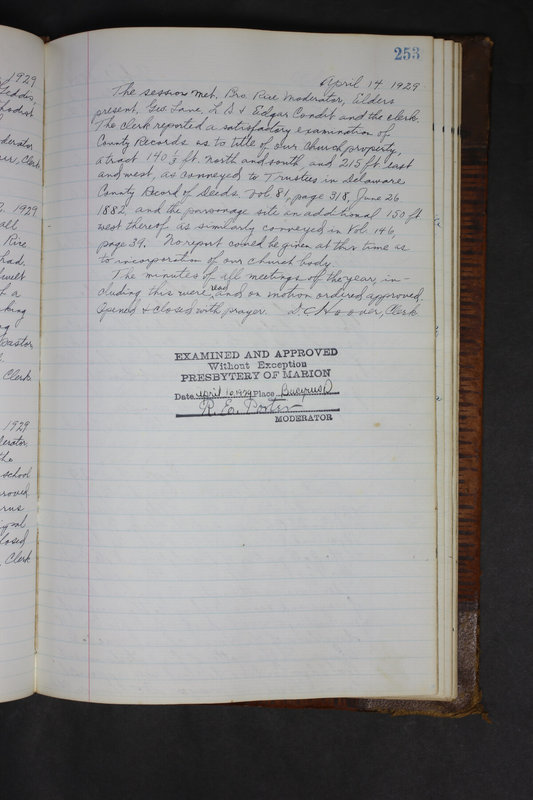 253
April 14 1929
The session met, Bro. Rice Moderator, Elders
present, Geo. Lane, L B & Edgar Condit and the clerk.
The clerk reported a satisfactory examination of
County Records as to title of our church property,
a tract 140 ft. north and south and 215 ft. east
and west, as conveyed to Trustees in Delaware
County Record of Deeds. Vol. 81, page 318, June 26.
1882, and the parsonage site an additional 150 ft
west thereof, as similarly conveyed in Vol. 146,
page 39. No report could be given at this time as
to incorporation of our church body.
The minutes of all meetings of the year, in-
cluding this were read and on motion ordered approved.
Opened & closed with prayer. Hoover, Clerk
EXAMINED AND APPROVED
Without Exception
PRESBYTERY OF MARION
Date April 16, 1929 Place Bucyrus O
R. E. Porter
MODERATOR
1929
Geddis,
Moderator
Clerk
1929
all
Rice
had.
of a
king
Pastor
Clerk
1929
the
school
proved
closed
Clerk